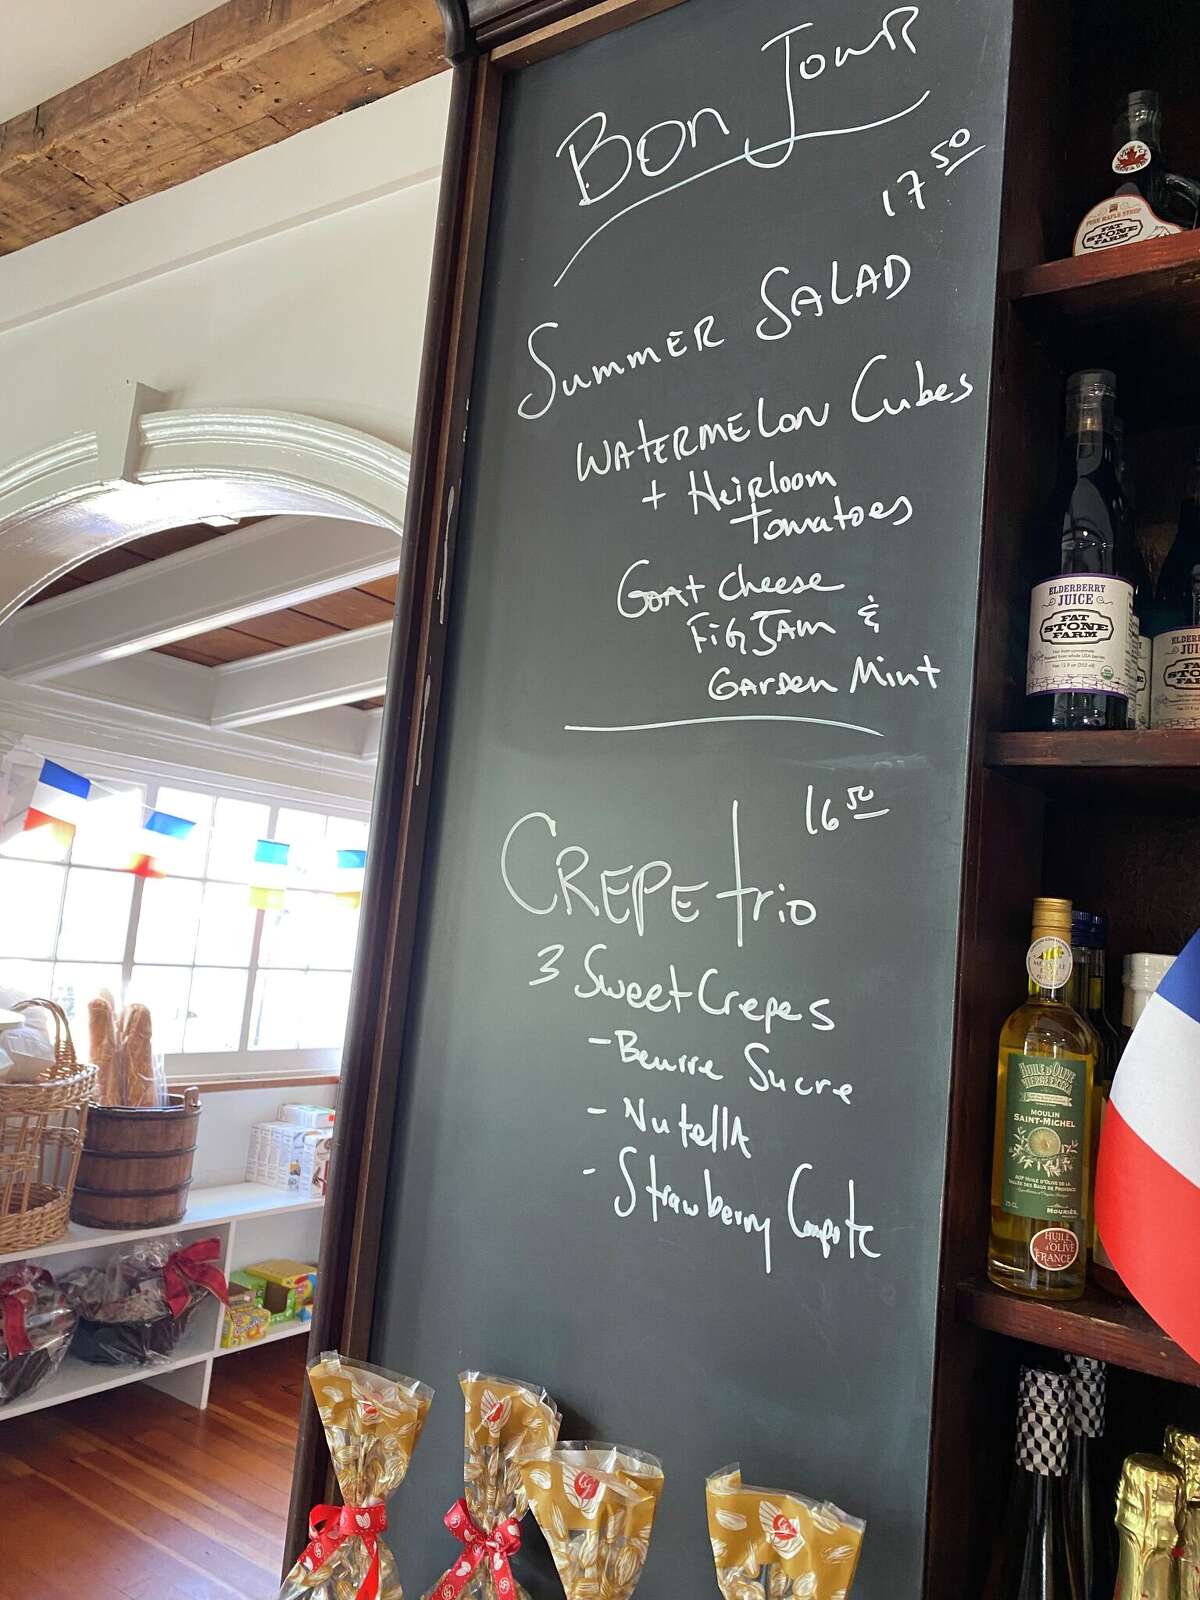 Bon Jour
17 50
Summer Salad
Watermelon Cubes
+ Heirloom
Tomatoes
Goat cheese
Fig Jam &
Garden Mint
16 50
Crepe trio
3 Sweet Crepes
- Beurre Sucre
- Nutella
- Strawberry Compote
PURE MAPLE SYRUP
FAT
STONE
FARM
ELDERBERRY
JUICE
FAT
STONE
FARM
HUILE D'OLIVE
VIERGE EXTRA
MOULIN
SAINT-MICHEL
AOP HUILE D'OLIVE DE LA
VALLÉE DES BAUX DE PROVENCE
MOURIÈS
HUILE
d'OLIVE
FRANCE